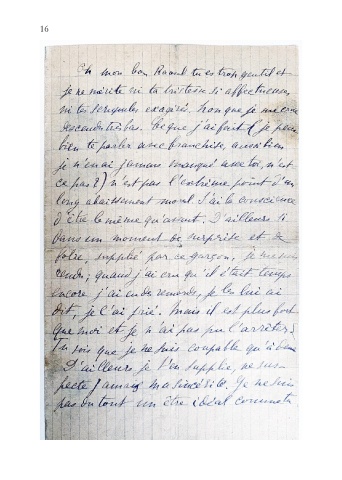 16
Oh mon bon Raoul tu es trop gentil et
je ne mérite ni ta tristesse si affectueuse,
ni tes scrupules exagérés. Non que je me crois
descendu très bas. Ce que j'ai fait (je peux
bien te parler avec franchise, aussi bien
je n'en ai jamais manqué avec toi, n'est
ce pas ?) n'est pas l'extrême point d'un
long abaissement moral. J'ai la conscience
d'être le même qu'avant. D'ailleurs si
dans un moment de surprise et de
folie, supplié par ce garçon, je me suis
rendu, quand j'ai cru qu'il était temps
encore j'ai eu des remords, je les lui ai
dit, je l'ai prié. Mais il est plus fort
que moi et je n'ai pas pu l'arrêter.
Tu vois que je ne suis coupable qu'à
D'ailleurs je t'en supplie, ne sus-
pecte jamais ma sincérité. Je ne suis
pas du tout un être idéal comme tu